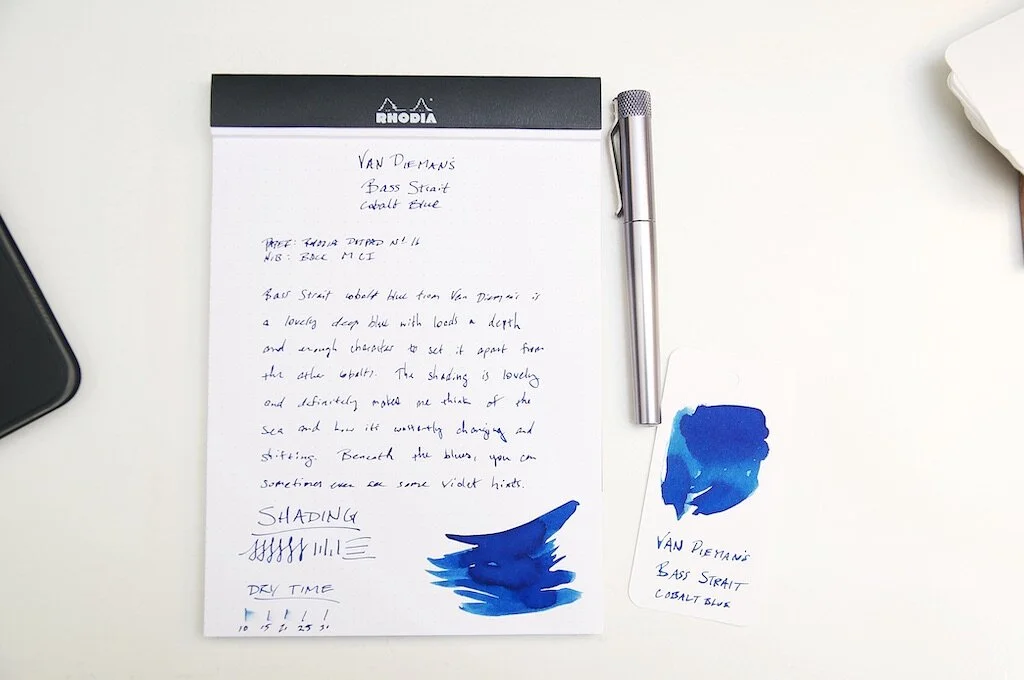 RHODIA
VAN DIEMAN'S
Bass Strait
Cobalt Blue
PAPER: RHODIA DOTPAD Nº 16
NIB: BOCK M CI
Bass Strait cobalt blue from Van Dieman's is
a lovely deep blue with loads a depth
and enough character to set it apart from
the other cobalts. The shading is lovely
and definitely makes me think of the
sea and how its constantly changing and
shifting. Beneath the blues, you can
sometimes even see some violet hints.
SHADING
DRY TIME
10 15 21 25 31
VAN DIEMAN'S
BASS STRAIT
COBALT BLUE